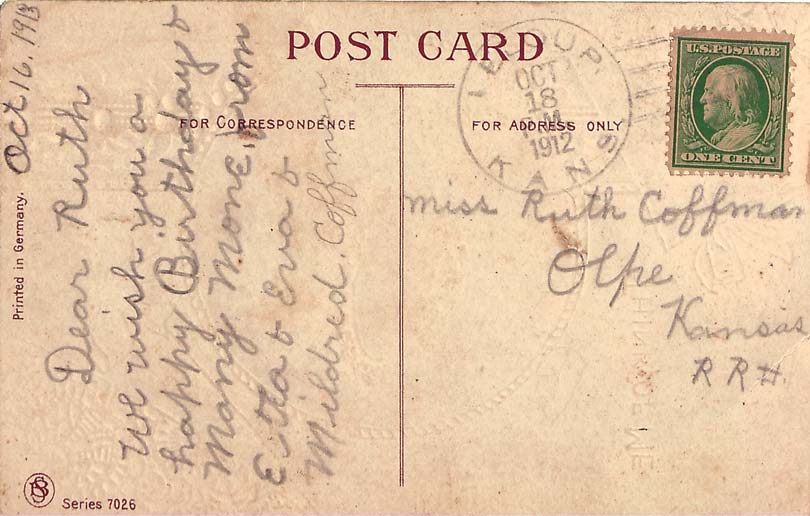 POST CARD
FOR CORRESPONDENCE
FOR ADDRESS ONLY
Oct 16, 191
Dear Ruth
We wish you a
happy Birthday &
Many More, from
Etta & Eva &
Mildred. Coffman
OCT
18
1912
KANS
U.S. POSTAGE
ONE CENT
Miss Ruth Coffman
Olpe
Kansas
Printed in Germany.
BS
Series 7026